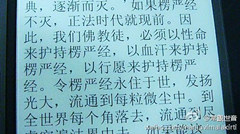 典，逐渐而灭。”如果楞严经
不灭，正法时代就现前。因
此，我们佛教徒，必须以性命
来护持楞严经，以血汗来护持
楞严经，以行愿来护持楞严
经。令楞严经永住于世，发扬
光大，流通到每粒微尘中。到
全世界每个角落去，流通到尽